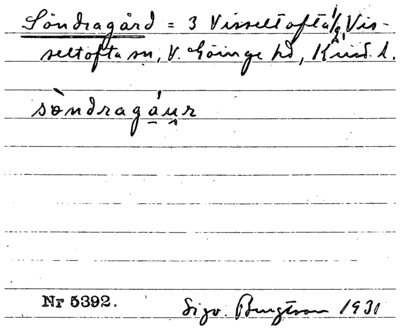 Söndragård = 3 Visseltofta, Vis-
seltofta sn, V. Göinge hd, Krist. l.
sòndragáu̯r
Nr 5392.
Sigv. Bengtson 1931